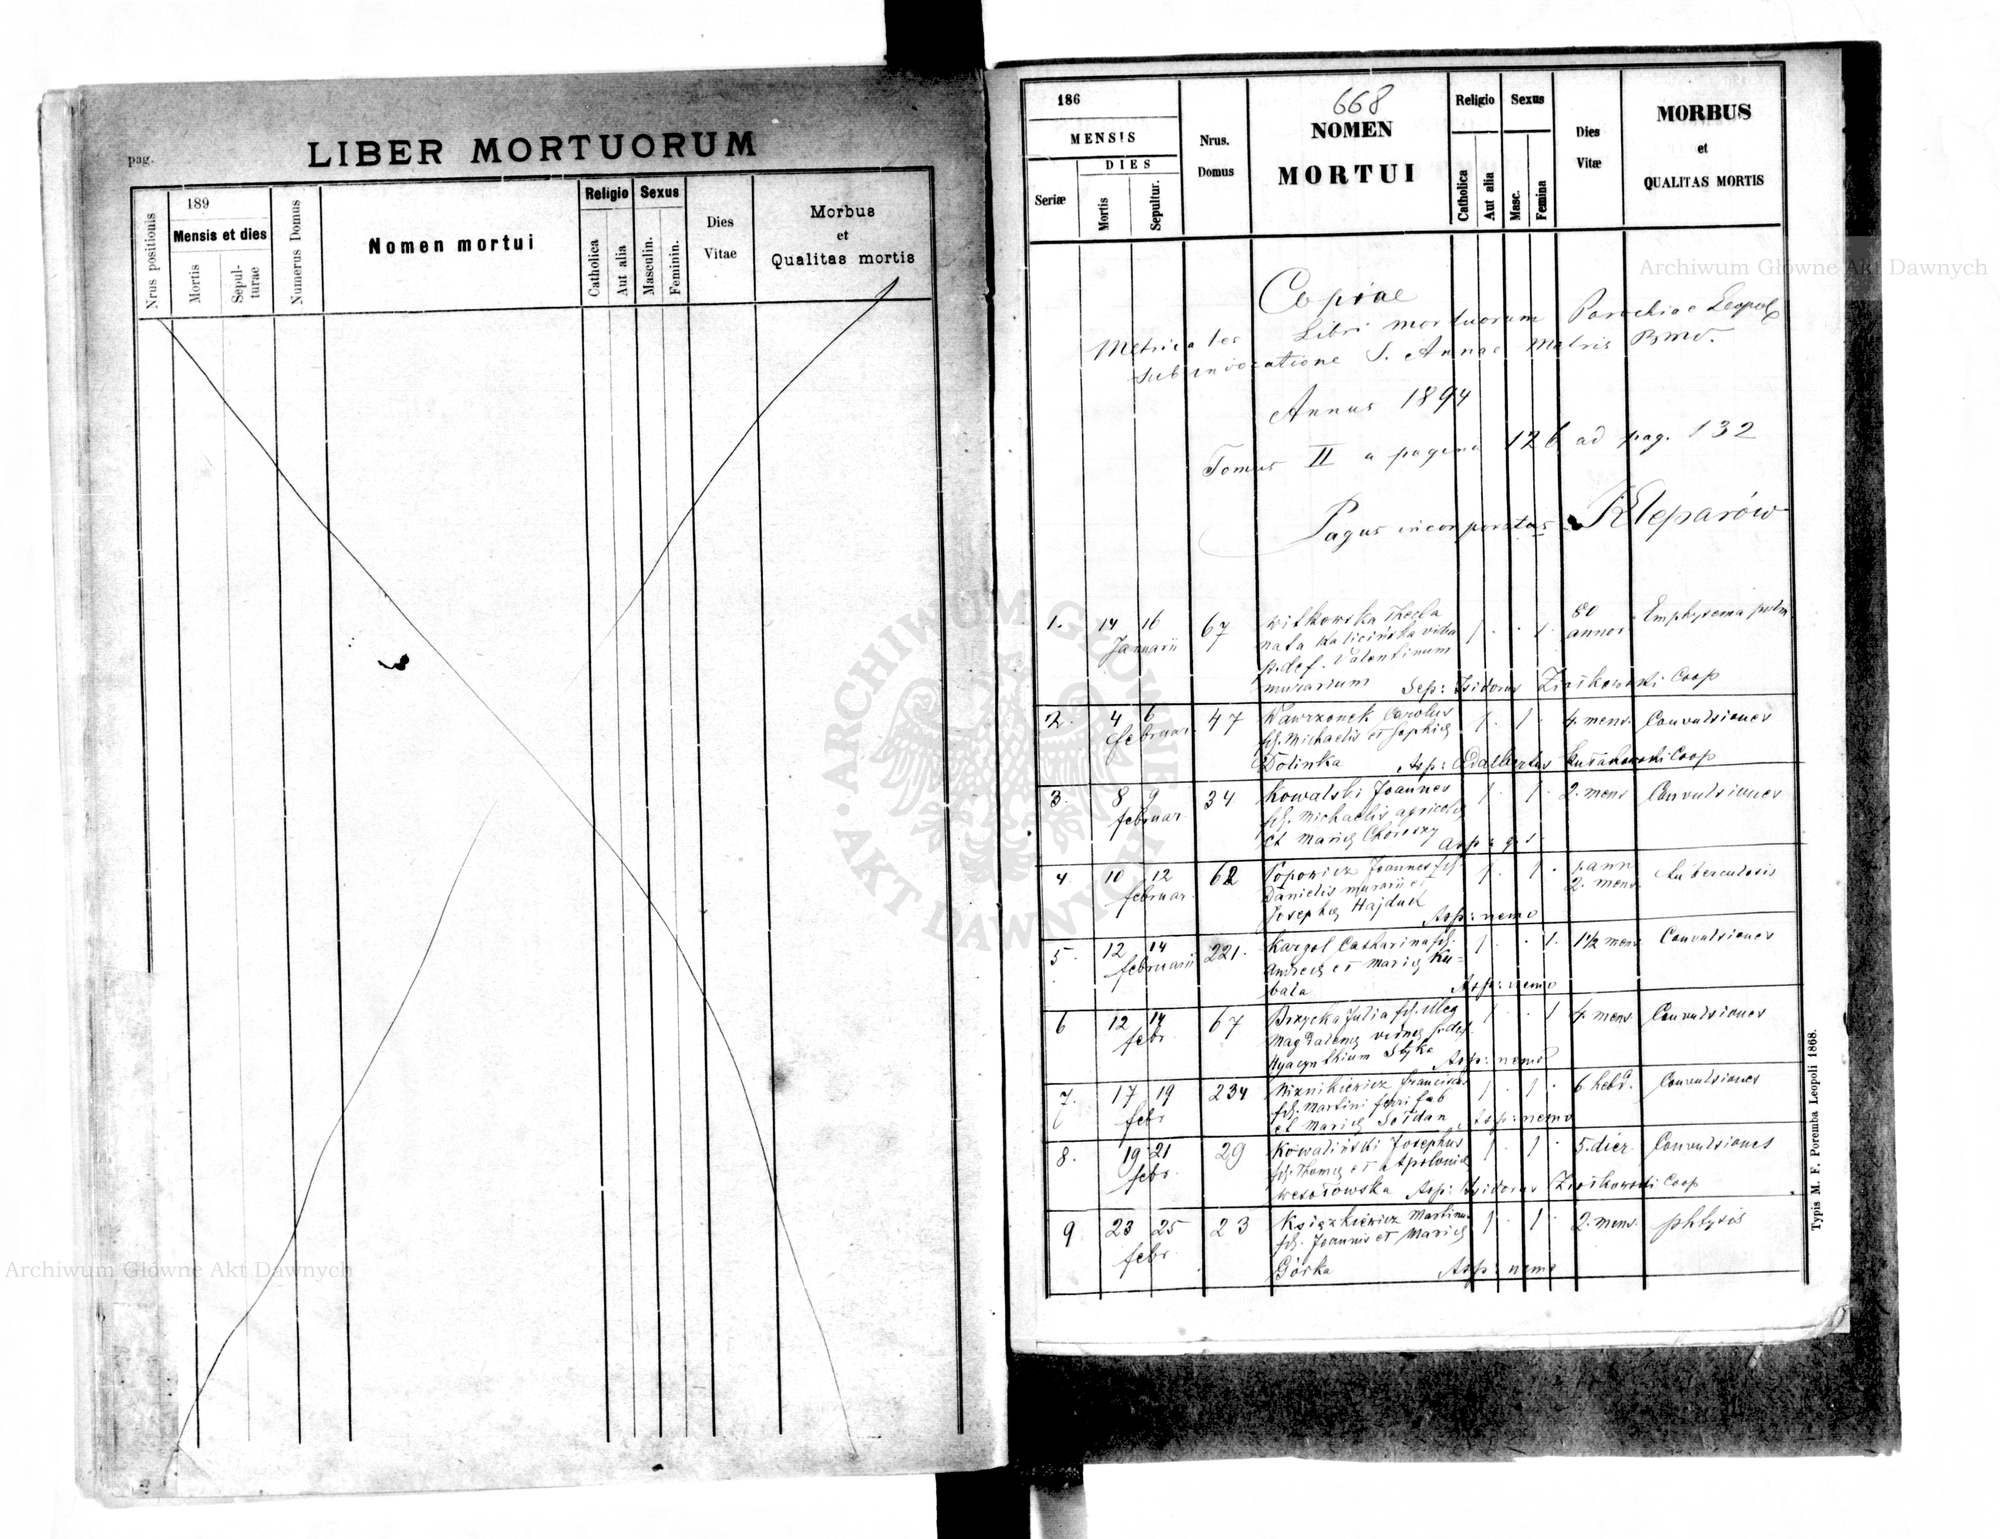 pag.
LIBER MORTUORUM
Nrus positionis
189
Mensis et dies
Mortis
Sepul-
turae
Numerus Domus
Nomen mortui
Religio
Catholica
Aut alia
Sexus
Masculin.
Feminin.
Dies
Vitae
Morbus
et
Qualitas mortis
186
MENSIS
Seriæ
DIES
Mortis
Sepultur.
Nrus.
Domus
668
NOMEN
MORTUI
Religio
Catholica
Aut alia
Sexus
Masc.
Femina
Dies
Vitæ
MORBUS
et
QUALITAS MORTIS
Copiae
Metricales Libri mortuorum Parochiae Leopol
sub invocatione S. Annae Matris BMV.
Annus 1894
Tomus II a pagina 126 ad pag. 132
Pagus incorporatus Kleparów
1. 14 16 67 Witkowska Thecla 1 . . 1. 80 Emphysema pulm
Januarii nata Kalicińska vidua annos
p. def. Valentinum
murarium Sep: Isidorus Ziołkowski Coop
2. 4 6 47 Wawrzonek Carolus 1. 1. 4 mens. Convulsiones
februar. fil. Michaelis et Sophiae
Dolinka Asp: Adalbertus Coop
3. 8 9 34 Kowalski Joannes 1. 1. 2. mens Convulsiones
februar. fil. Michaelis agricolae
et Mariae Asp:
4. 10 12 62 Popowicz Joannes fil. 1. 1. 1. ann Tuberculosis
februar. Danielis murarii et 2. mens.
Josephae Hajduk Asp: nemo
5. 12 14 221. Kargol Catharina fil. 1. . 1. 1½ mens. Convulsiones
februarii Andreae et Mariae Ku=
bala Asp: nemo
6 12 14 67 Brzycka Julia fil. illeg 1. . 1 4. mens Convulsiones
febr. Magdalenae viduae p. def.
Hyacynthium Styka Asp: nemo
7. 17 19 234 Francisc. 1. 1. 6 hebd. Convulsiones
febr fil. Martini ferri fab
et Mariae Sołdan Asp: nemo
8. 19 21 29 Kowaliński Josephus 1. 1. 5. dier. Convulsiones
febr. fil. Thomae et Apoloniae
Wesołowska Asp: Isidorus Ziołkowski Coop
9 23 25 23 Książkiewicz Martinus 1. 1. 2. mens. phtysis
febr. fil. Joannis et Mariae
Górka Asp: nemo
Typis M. F. Poremba Leopoli 1868.
ARCHIWUM GŁÓWNE AKT DAWNYCH
Archiwum Główne Akt Dawnych
Archiwum Główne Akt Dawnych